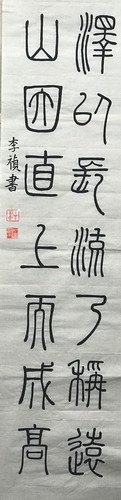 澤以長流乃稱遠
山因直上而成高
李楨書